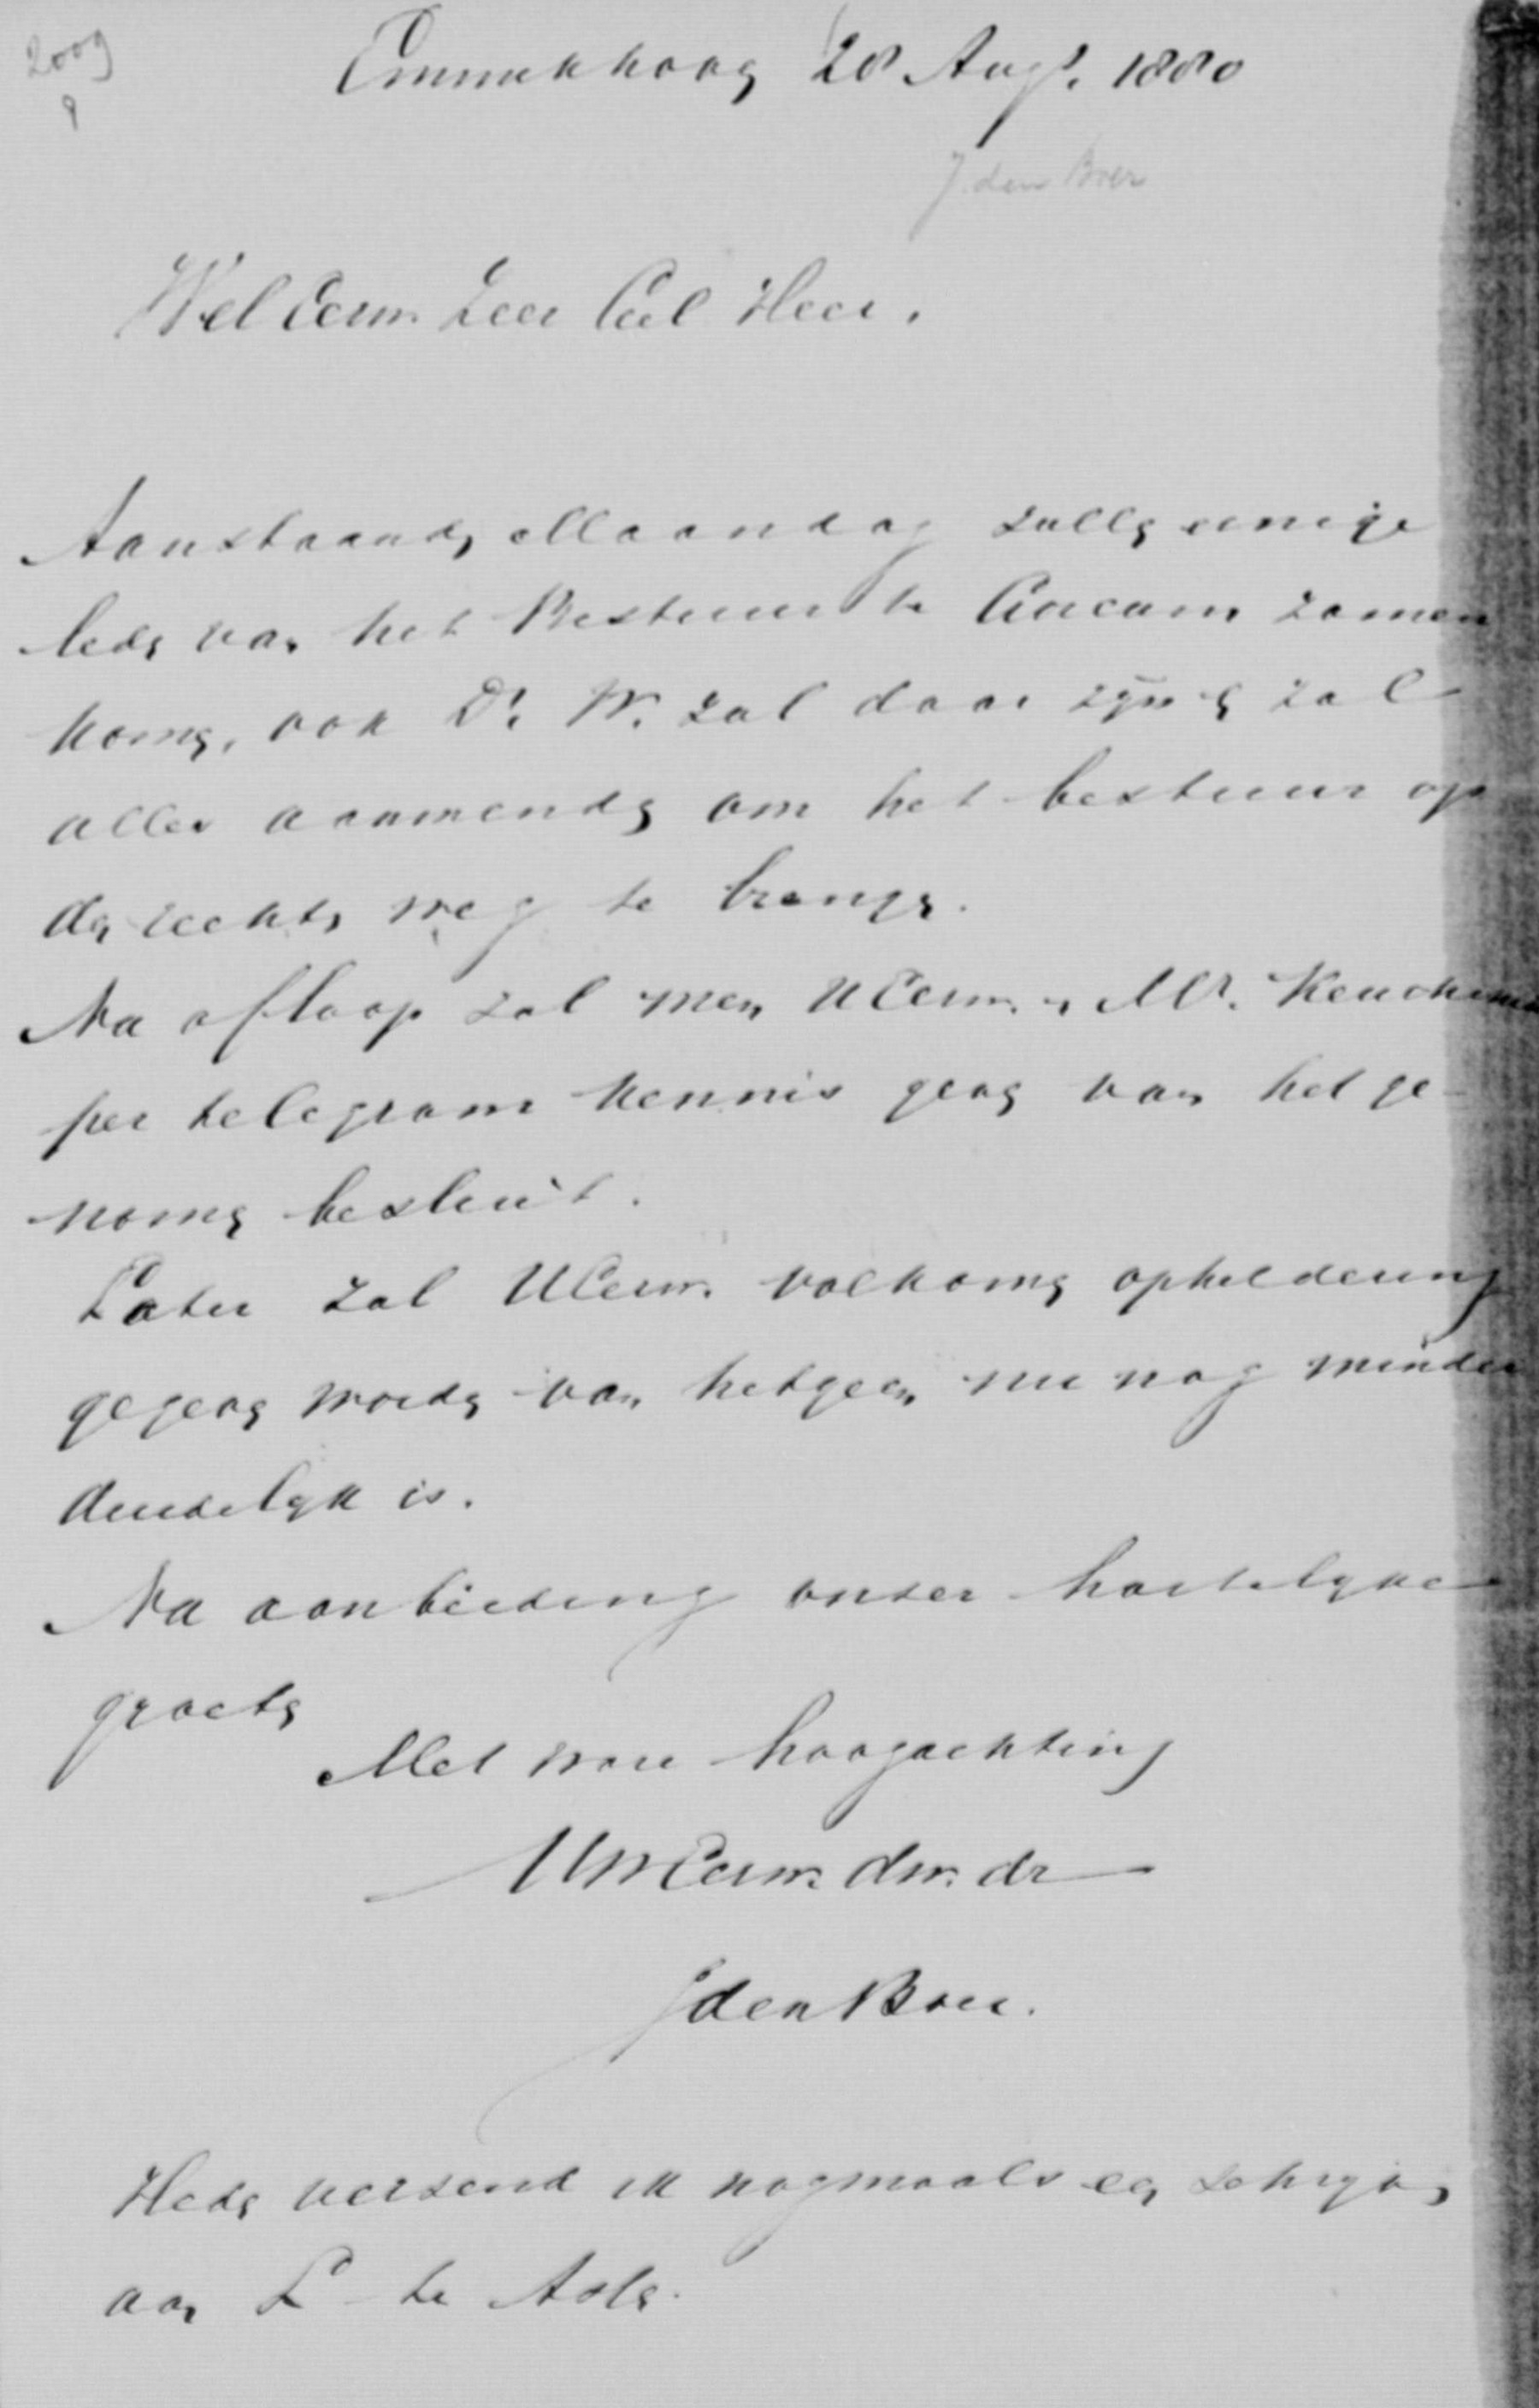 2009
9
Emmikhoog 28 Augs. 1880
J. den Boer
WelEerw. Zeer Gel Heer.
Aanstaanden Maandag zullen eenige
leden van het Bestuur te Gorcum zamen
komen, ook Dr. W. zal daar zijn en zal
alles aanwenden om het bestuur op
den rechten weg te brengen.
Na afloop zal men UEerw. en Mr. Keuchenius
per telegram kennis geven van het ge-
nomen besluit.
Later zal UEerw. volkomen opheldering
gegeven worden van hetgeen nu nog minder
duidelijk is.
Na aanbieding onzer hartelijke
groeten
Met ware hoogachting
UwEerw. dw. dr
J den Boer.
Heden verzend ik nogmaals een schrijven
aan L te